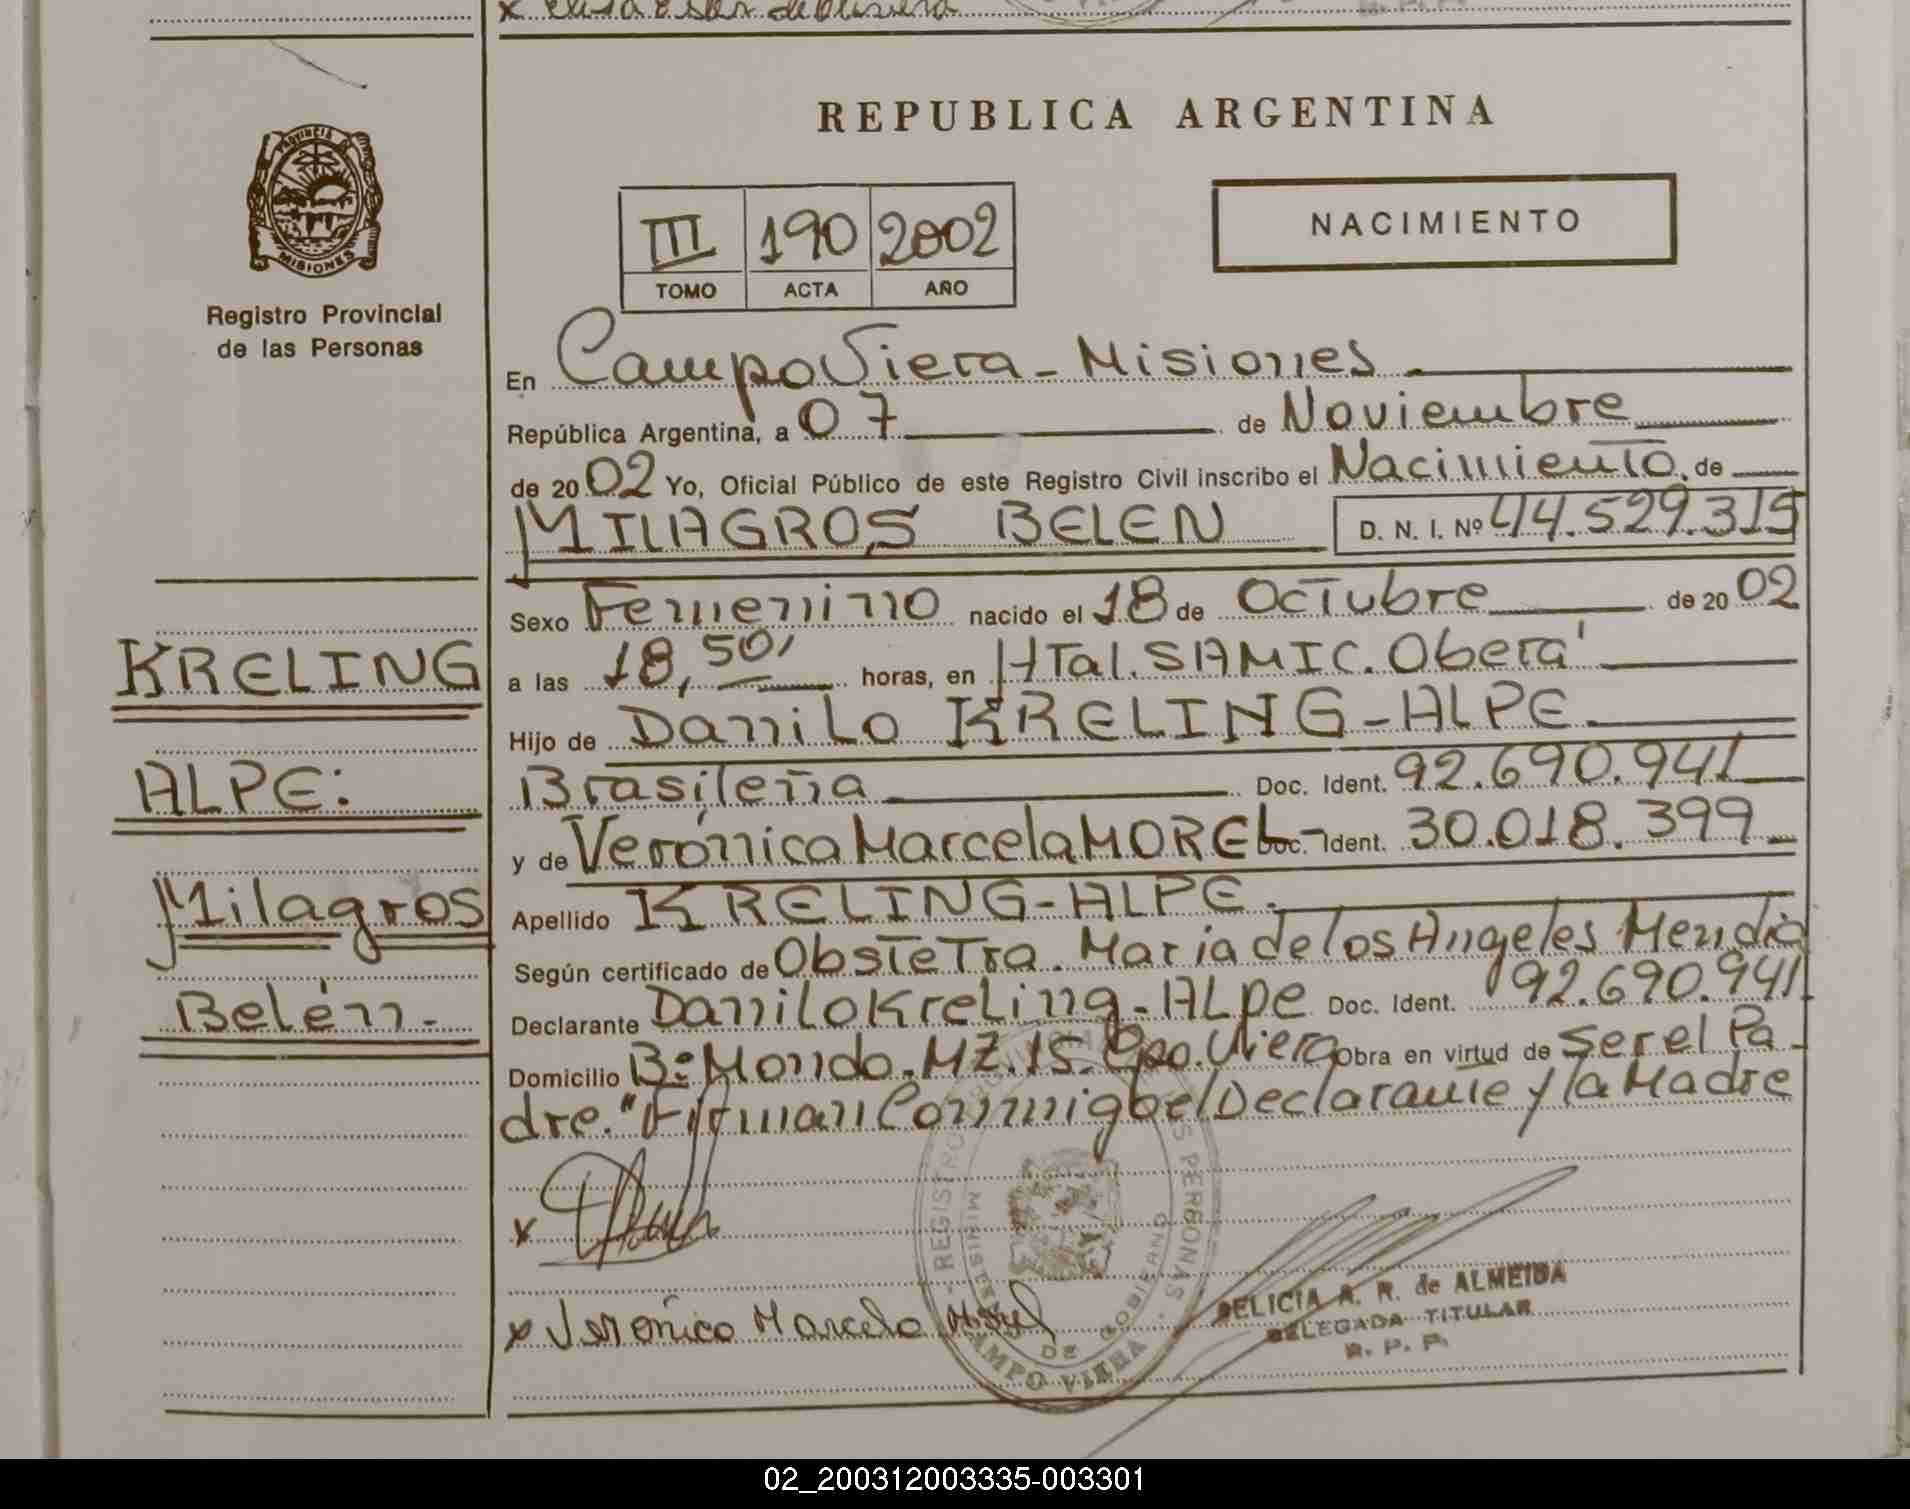 REPUBLICA ARGENTINA
PROVINCIA DE MISIONES
Registro Provincial
de las Personas
III 190 2002
TOMO ACTA AÑO
NACIMIENTO
En Campo Viera - Misiones
República Argentina, a 07 de Noviembre
de 2002 Yo, Oficial Público de este Registro Civil inscribo el Nacimiento de
MILAGROS BELEN D. N. I. Nº 44.529.315
Sexo Femenino nacido el 18 de Octubre de 2002
a las 18,50' horas, en HTal. SAMIC. Oberá
Hijo de Danilo KRELING-ALPE.
Brasileña Doc. Ident. 92.690.941
y de Verónica Marcela MOREL- Doc. Ident. 30.018.399
Apellido KRELING-ALPE.
Según certificado de Obstetra. Maria de los Angeles Mendia
Declarante Danilo Kreling-Alpe Doc. Ident. 92.690.941
Domicilio Bº Mondo. MZ.15. Cpo. Viera Obra en virtud de ser el Pa-
dre. "Firman Conmigo el Declarante y la Madre
x
x Veronica Marcela Morel
KRELING
ALPE:
Milagros
Belén.-
REGISTRO PERSONAS
MINISTERIO DE GOBIERNO
CAMPO VIERA
DELICIA A. R. de ALMEIDA
DELEGADA TITULAR
R. P. P.
02_200312003335-003301